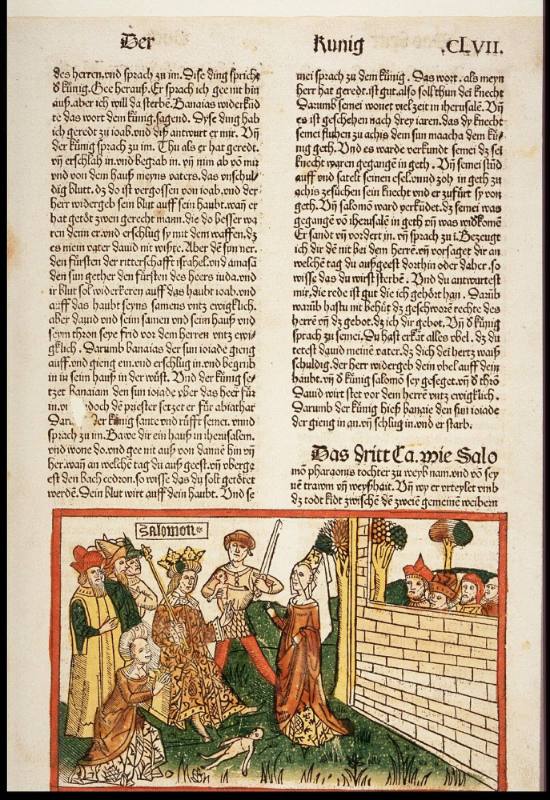 Der Kunig .CLVII.
des herren.vnd sprach zu im. Dise ding spricht
d künig. Gee herauß. Er sprach ich gee nit hin
auß.aber ich will da sterbē. Banaias widerkün
te das wort dem künig.sagend. Dyse ding hab
ich geredt zu ioab.vnd diß antwurt er mir. Vñ
der künig sprach zu im. Thu als er hat geredt.
vñ erschlah in.vnd begrab in. vñ nim ab vō mir
vnd von dem hauß meyns vaters.das vnschul-
dig blutt.dz do ist vergossen von ioab.vnd der
herr widergeb sein blut auff sein haubt.wañ er
hat getöt zwen gerecht mann.die do besser wa
ren denn er.vnd erschlug sy mit dem waffen.dz
es mein vater dauid nit wißte. Aber dē sun ner.
den fürsten der ritterschafft israhel.vnd amasā
den sun gether den fürsten des heers iuda.vnd
ir blut sol widerkeren auff das haubt ioab.vnd
auff das haubt seyns samens vntz ewigklich.
aber dauid vnd sein samen vnd sein hauß vnd
seym thron seye frid vor dem herren vntz ewi-
gklich. Darumb banaias der sun ioiade gieng
auff.vnd gieng ein.vnd erschlug in.vnd begrub
in in sein hauß in der wüst. Vnd der künig se-
tzet Banaiam den sun ioiade vber das heer für
in.vnd sadoch dē priester setzet er für abiathar
der künig sante vnd rüfft semei. vnnd
sprach zu im. Bawe dir ein hauß in iherusalem.
vnd wone do.vnd gee nit auß von danne hin vñ
her.wañ an welchē tag du auß geest.vñ oberge
est den bach cedron.so wisse das du solt getötet
werdē. Dein blut wirt auff dein haubt. Vnd se
mei sprach zu dem künig. Das wort. als meyn
herr hat geredt.ist gut.also soll thun dei knecht
Darumb semei wonet vielzeit in iherusalē. Vñ
es ist geschehen nach drey iaren.das dy knecht
semei fluhen zu achis dem sun maacha dem kü-
nig geth. Vnd es warde verkündt semei dz sei
knecht waren gegangē in geth. Vñ semei stūd
auff vnd satelt seinen esel.vnnd zoh in geth zu
achis zesuchen sein knecht vnd er zufürt sy von
geth. Vñ salomō ward verküdet.dz semei was
gegangē vō iherusalē in geth vñ was widkomē
Er sandt vñ vordert in. vñ sprach zu i. Bezeugt
ich dir dē nit bei dem herrē.vñ vorsaget dir an
welchē tag du außgeest dorthin oder daher.so
wisse das du wirst sterbē. Vnd du antwurtest
mir.die rede ist gut die ich gehört han. Darūb
warūb hastu nit behüt dz geschworē rechte des
herrē vñ dz gebot.dz ich dir gebot. Vñ d künig
sprach zu semei. Du hast erkāt alles vbel. dz du
tetest dauid meinē vater.dz dich dei hertz waiß
schuldig.der herr widergeb dein vbel auff dein
haubt.vñ d künig salomō sey gesegnet.vñ d thrō
Dauid wirt stet vor dem herrē vntz ewigklich.
Darumb der künig hieß banaie den sun ioiade
der gieng in an.vñ schlug in.vnd er starb.
Das dritt Ca. wie Salo
mō pharaonis tochter zu weyb nam.vnd vō sey
nē trawm vñ weyßhait. Vñ wy er vrteylet vmb
dz todt kidt zwischē dē zweiē gemeinē weibern
Salomon